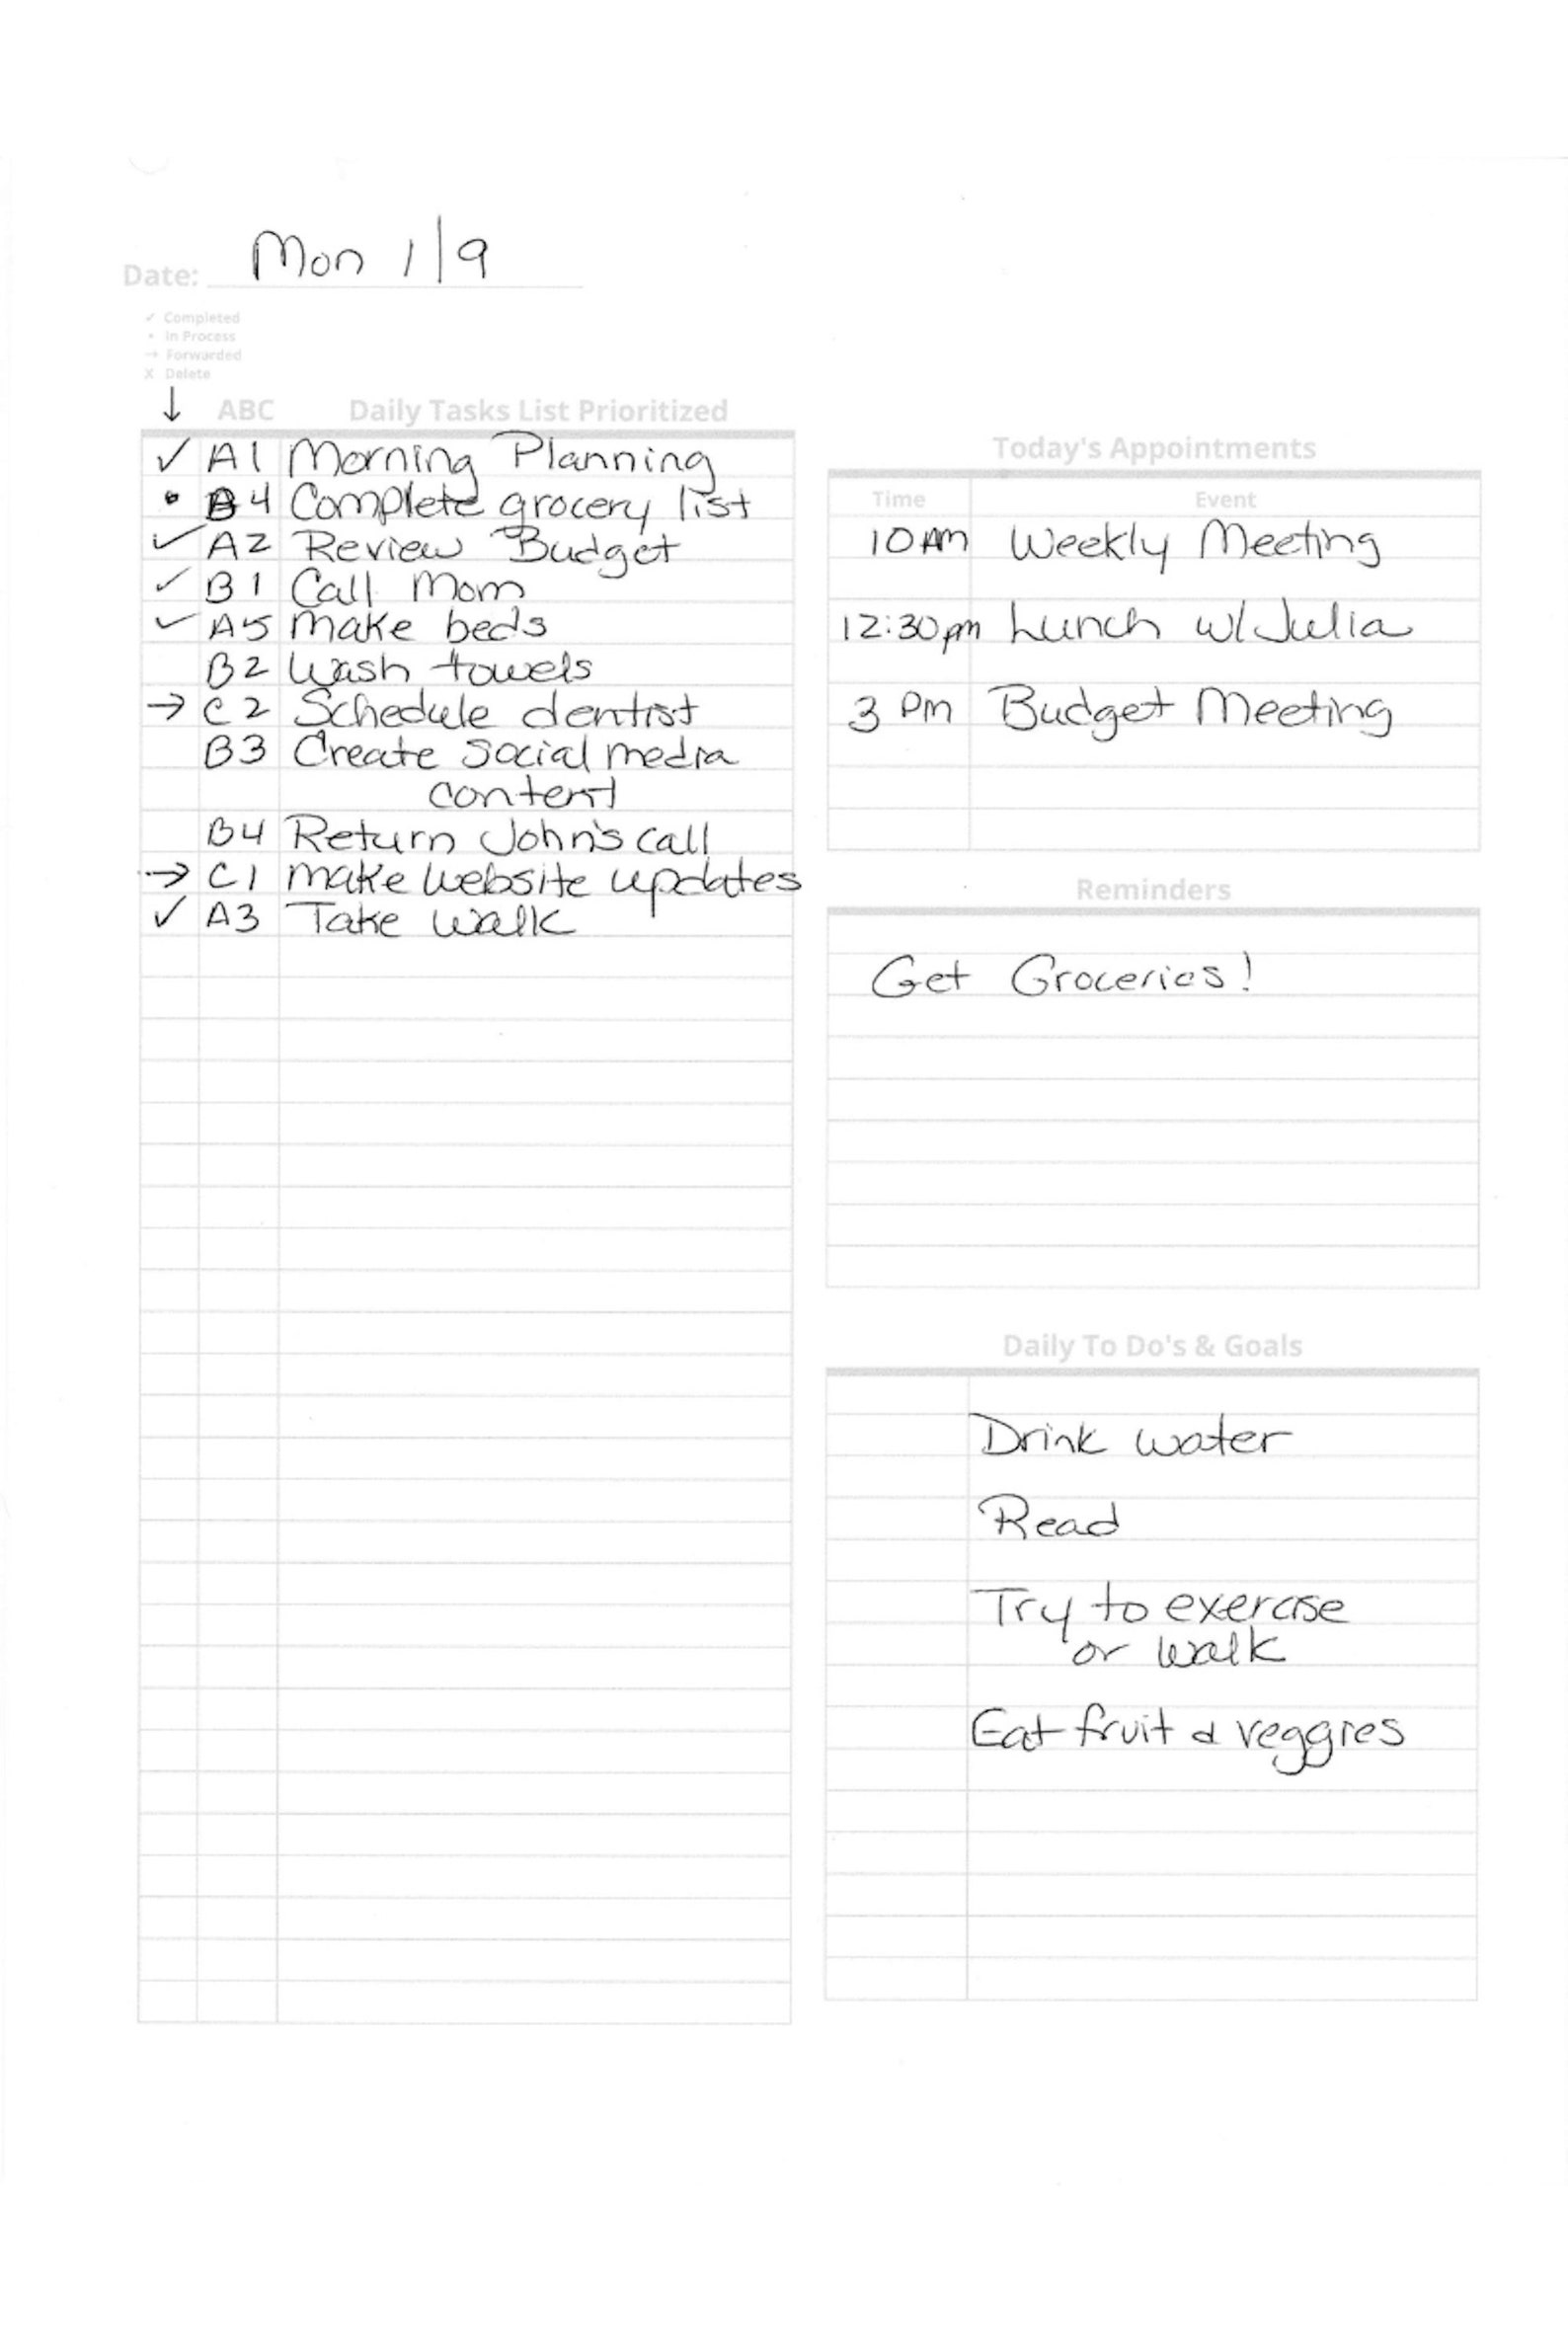 Date: Mon 1/9
✓ Completed
• In Process
→ Forwarded
X Delete
↓ ABC Daily Tasks List Prioritized
✓ A1 Morning Planning
• A4 Complete grocery list
✓ A2 Review Budget
✓ B1 Call Mom
✓ A5 Make beds
B2 Wash towels
→ C2 Schedule dentist
B3 Create social media
content
B4 Return John's call
→ C1 Make website updates
✓ A3 Take walk
Today's Appointments
Time Event
10 AM Weekly Meeting
12:30 pm Lunch w/ Julia
3 PM Budget Meeting
Reminders
Get Groceries!
Daily To Do's & Goals
Drink water
Read
Try to exercise
or walk
Eat fruit & veggies